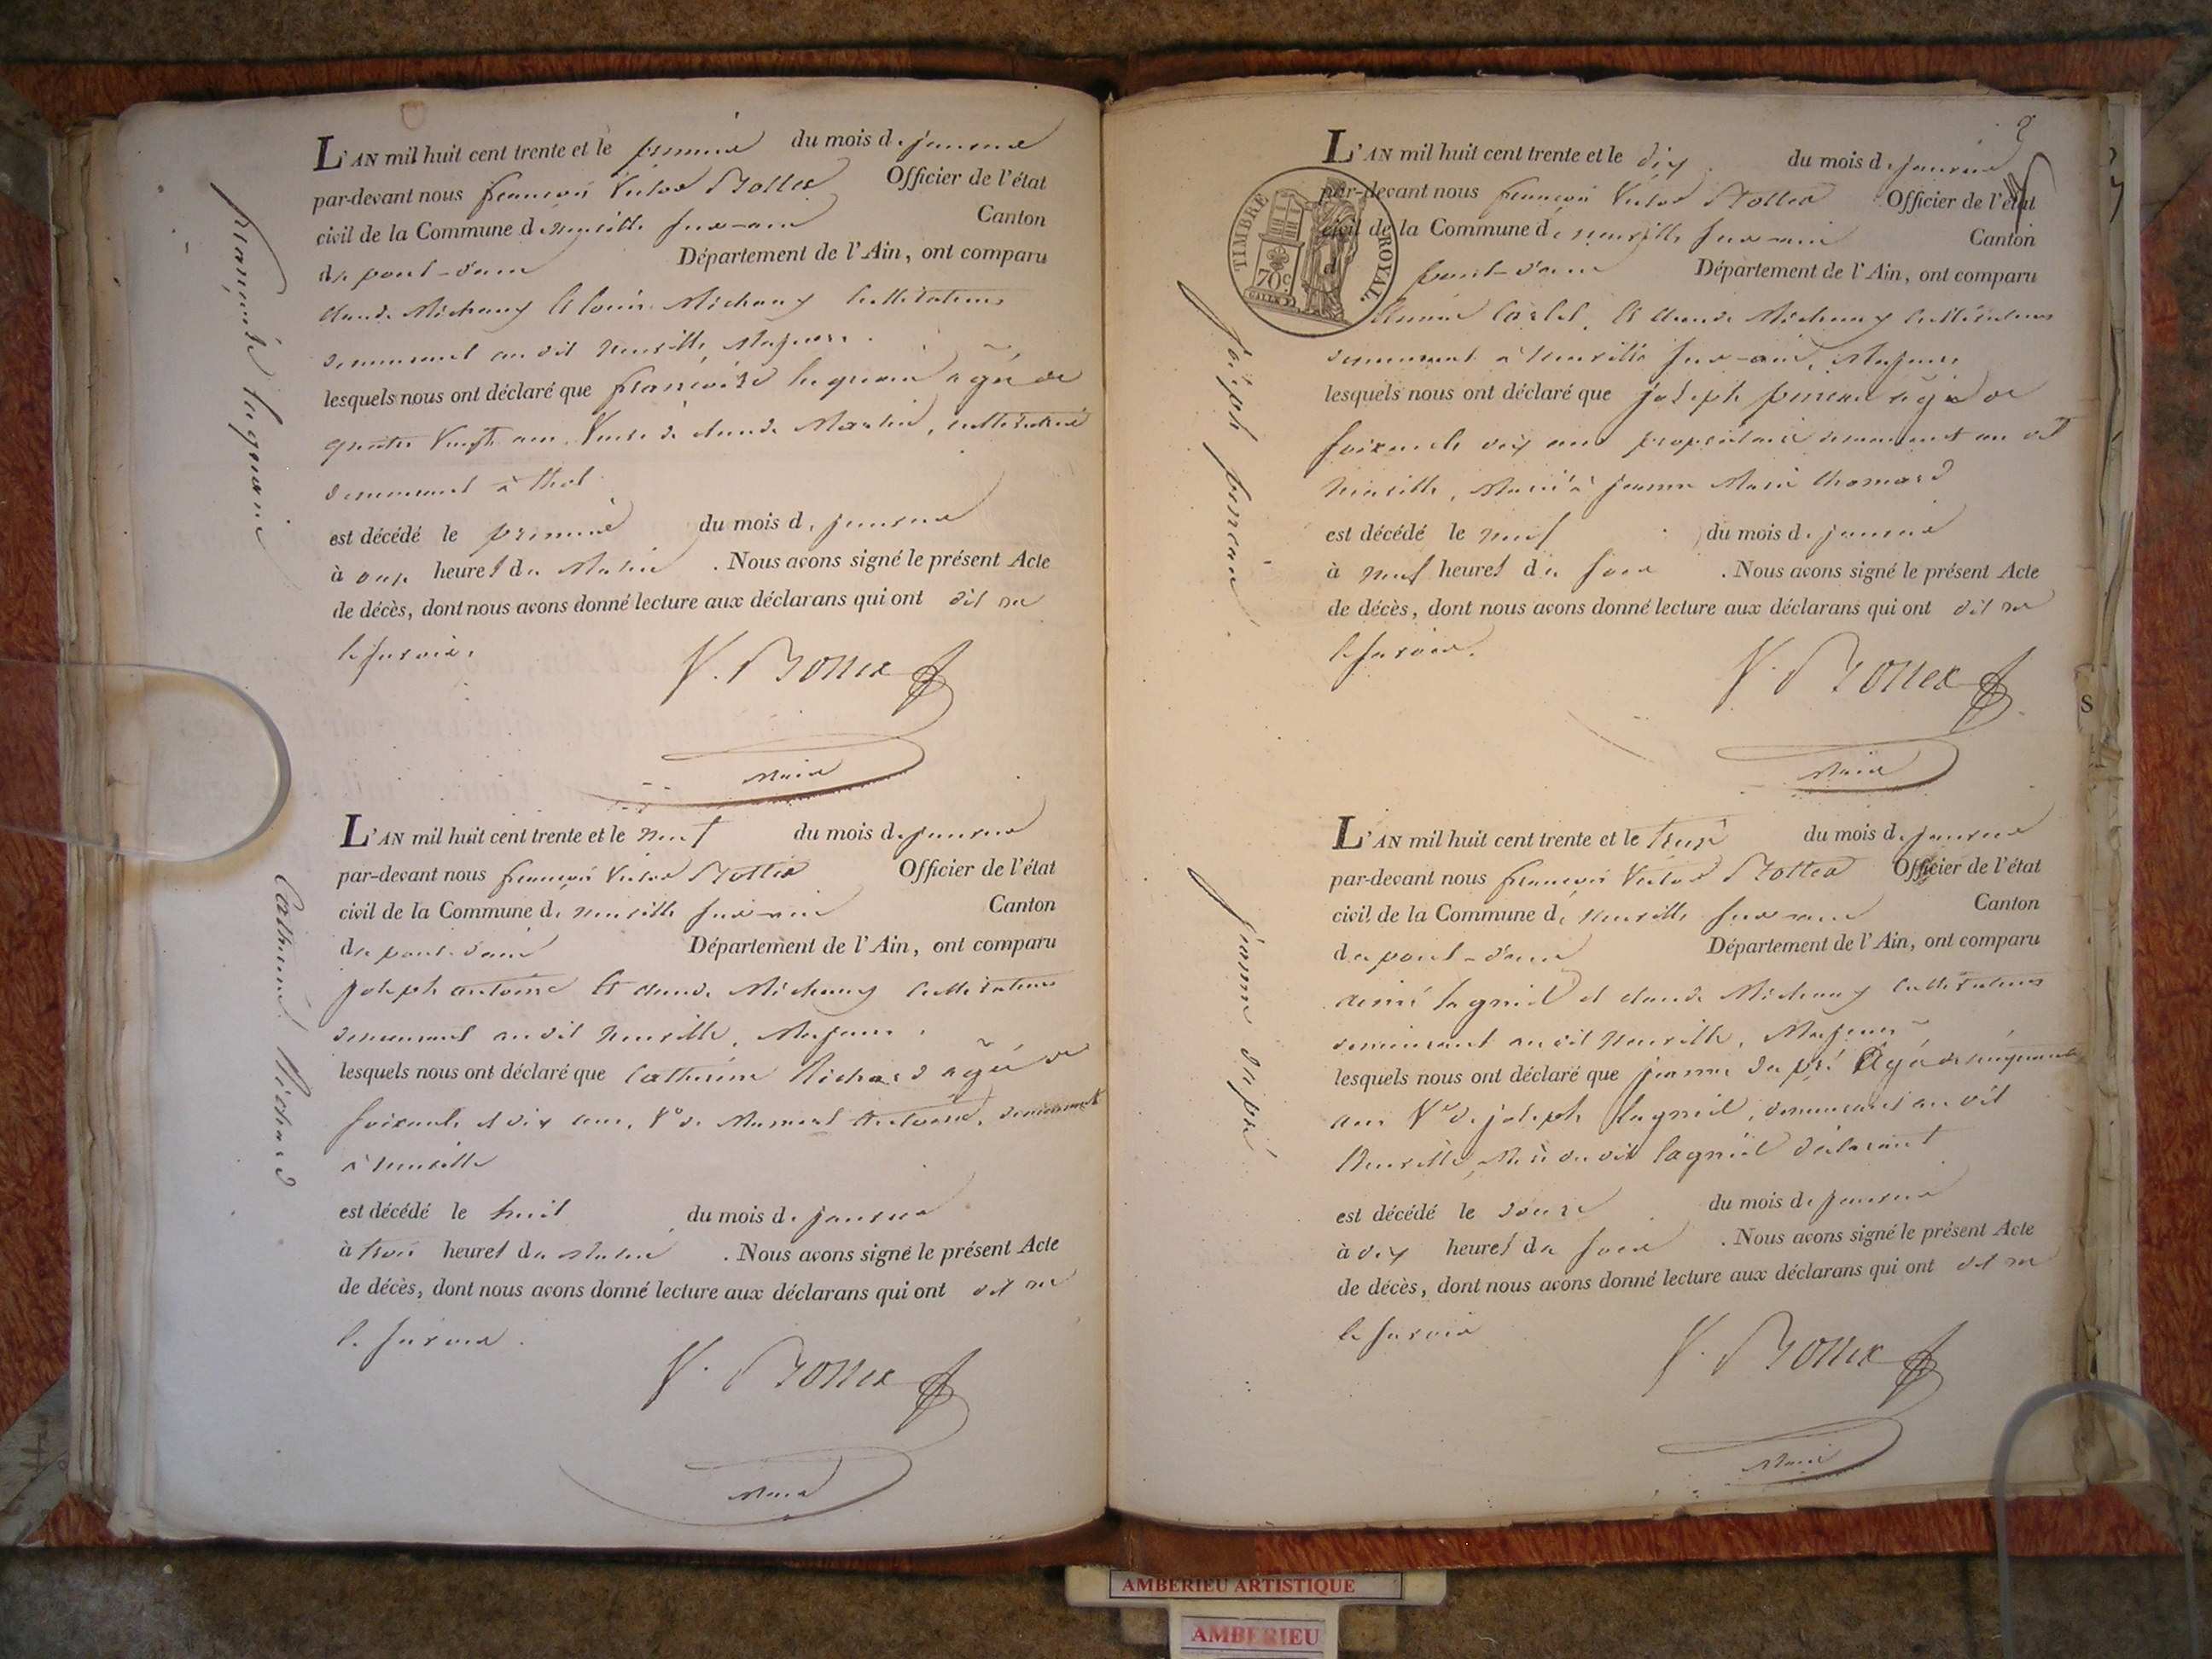 L'AN mil huit cent trente et le premier du mois de janvier
par-devant nous françois Victor Officier de l'état
civil de la Commune de neuville sur-ain Canton
de pont-d'ain Département de l'Ain, ont comparu
Claude Michaux et louis Michaux cultivateurs
demeurant au dit neuville, Majeurs.
lesquels nous ont déclaré que françoise agée de
quatre Vingts ans, Veuve de claude Martin, cultivatrice
demeurant à thol
est décédé le premier du mois de janvier
à onze heures du Matin . Nous avons signé le présent Acte
de décès, dont nous avons donné lecture aux déclarans qui ont dit ne
le savoir.
Maire
françoise
L'AN mil huit cent trente et le neuf du mois de janvier
par-devant nous françois Victor Officier de l'état
civil de la Commune de neuville sur-ain Canton
de pont-d'ain Département de l'Ain, ont comparu
joseph antoine Et claude Michaux cultivateurs
demeurant au dit neuville, Majeurs.
lesquels nous ont déclaré que Catherine Richard agée de
soixante et dix ans, Ve de antoine, demeurant
à neuville
est décédé le huit du mois de janvier
à trois heures du matin . Nous avons signé le présent Acte
de décès, dont nous avons donné lecture aux déclarans qui ont dit ne
le savoir.
Maire
Catherine Richard
2
L'AN mil huit cent trente et le dix du mois de janvier
par-devant nous françois Victor Officier de l'état
civil de la Commune de neuville sur-ain Canton
d pont-d'ain Département de l'Ain, ont comparu
TIMBRE ROYAL
70c
Et claude Michaux cultivateurs
demeurant à neuville sur-ain, Majeurs
lesquels nous ont déclaré que joseph agé de
soixante dix ans propriétaire demeurant au dit
Neuville, Marié à jeanne Marie thomard
est décédé le neuf du mois de janvier
à neuf heures du soir . Nous avons signé le présent Acte
de décès, dont nous avons donné lecture aux déclarans qui ont dit ne
le savoir.
Maire
Joseph
L'AN mil huit cent trente et le treize du mois de janvier
par-devant nous françois Victor Officier de l'état
civil de la Commune de neuville sur-ain Canton
de pont-d'ain Département de l'Ain, ont comparu
aimé lagniel et claude Michaux cultivateurs
demeurant au dit neuville, Majeurs
lesquels nous ont déclaré que jeanne dupré Agée de cinquante
ans Ve de joseph lagniel, demeurant au dit
Neuville, Mère du dit lagniel déclarant
est décédé le douze du mois de janvier
à dix heures du soir . Nous avons signé le présent Acte
de décès, dont nous avons donné lecture aux déclarans qui ont dit ne
le savoir
Maire
Jeanne dupré
S
AMBERIEU ARTISTIQUE
AMBERIEU